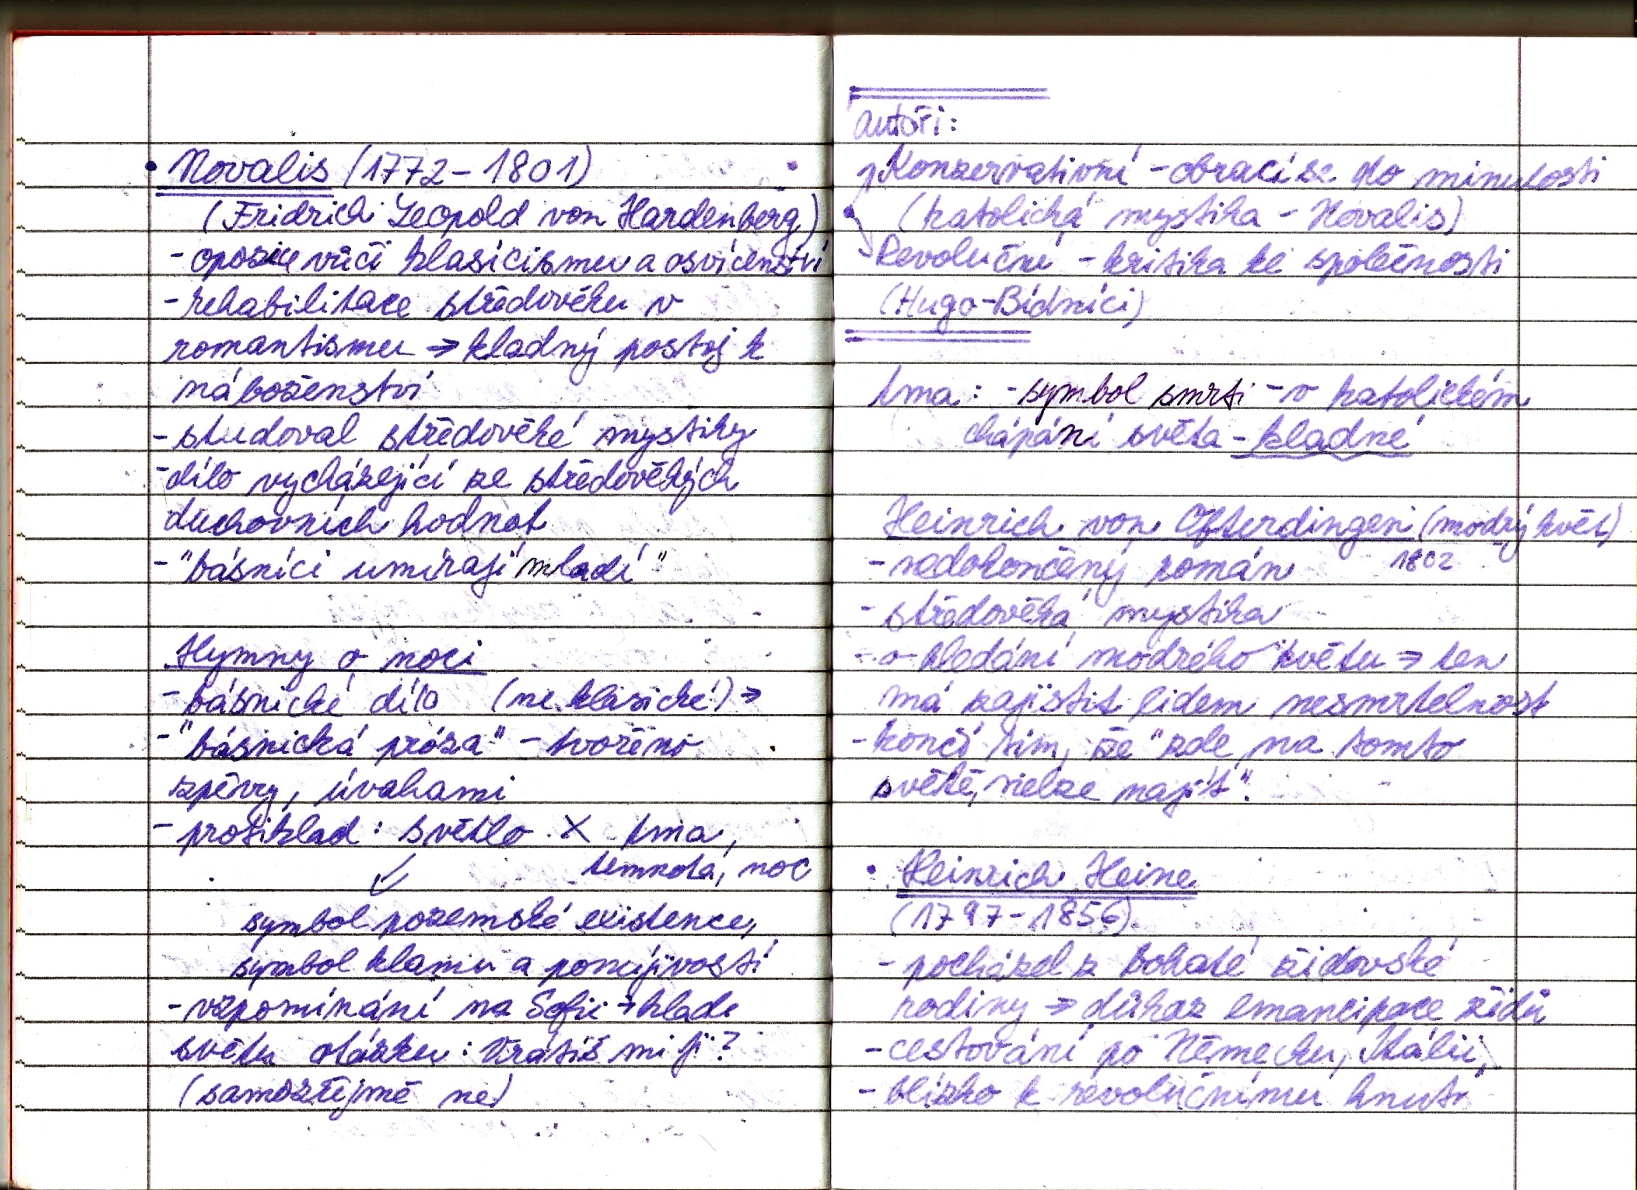 • Novalis (1772-1801)
(Fridrich Leopold von Hardenberg)
- opozice vůči klasicismu a osvícenství
- rehabilitace středověku v
romantismu → kladný postoj k
náboženství
- studoval středověké mystiky
- dílo vycházející ze středověkých
duchovních hodnot
- "básníci umírají mladí"
Hymny o noci
- básnické dílo (ne klasické!) →
- "básnická próza" - tvořeno
zpěvy, úvahami
- protiklad: světlo × tma,
temnota, noc
symbol pozemské existence,
symbol klamu a pomíjivosti
- vzpomínání na Sofii → klade
světu otázku: Vrátíš mi ji?
(samozřejmě ne)
autoři:
Konzervativní - obrací se do minulosti
(katolická mystika - Novalis)
Revoluční - kritika ke společnosti
(Hugo - Bídníci)
tma: - symbol smrti - v katolickém
chápání světa - kladné
Heinrich von Ofterdingen (modrý květ)
- nedokončený román 1802
- středověká mystika
- o hledání modrého květu → ten
má zajistit lidem nesmrtelnost
- končí tím, že "zde, na tomto
světě, nelze najít".
• Heinrich Heine
(1797-1856)
- pocházel z bohaté židovské
rodiny → důkaz emancipace židů
- cestování po Německu, Itálii,
- blízko k revolučnímu hnutí